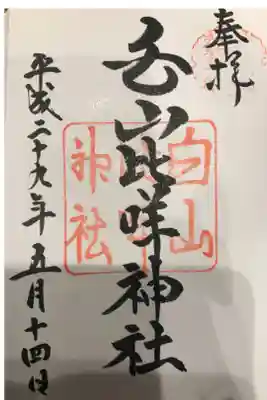 奉拝
白山比咩神社
平成二十九年五月十四日
白山
神社